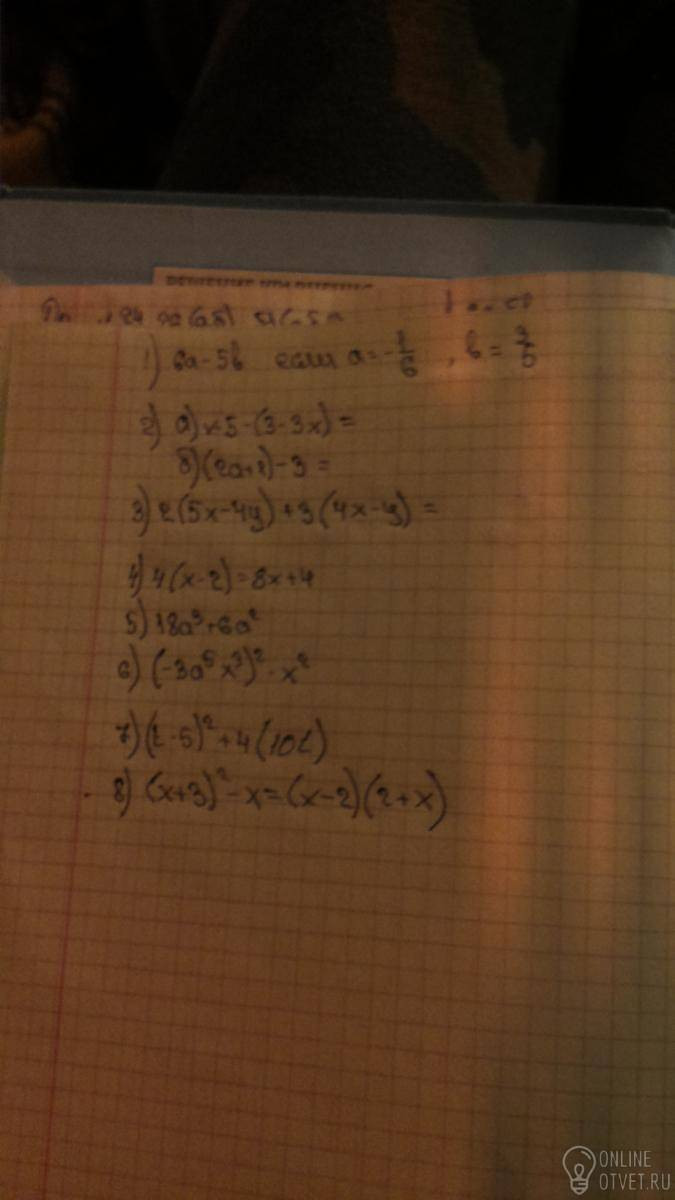 1) 6a-5b если a=-1/6, b=3/5
2) а) x5-(3-3x)=
б) (2a+1)-3=
3) 2(5x-4y)+3(4x-y)=
4) 4(x-2)=8x+4
5) 18a³+6a²
6) (-3a⁵x³)²·x²
7) ( -5)²+4(10 )
8) (x+3)²-x=(x-2)(2+x)
ONLINE
OTVET.RU